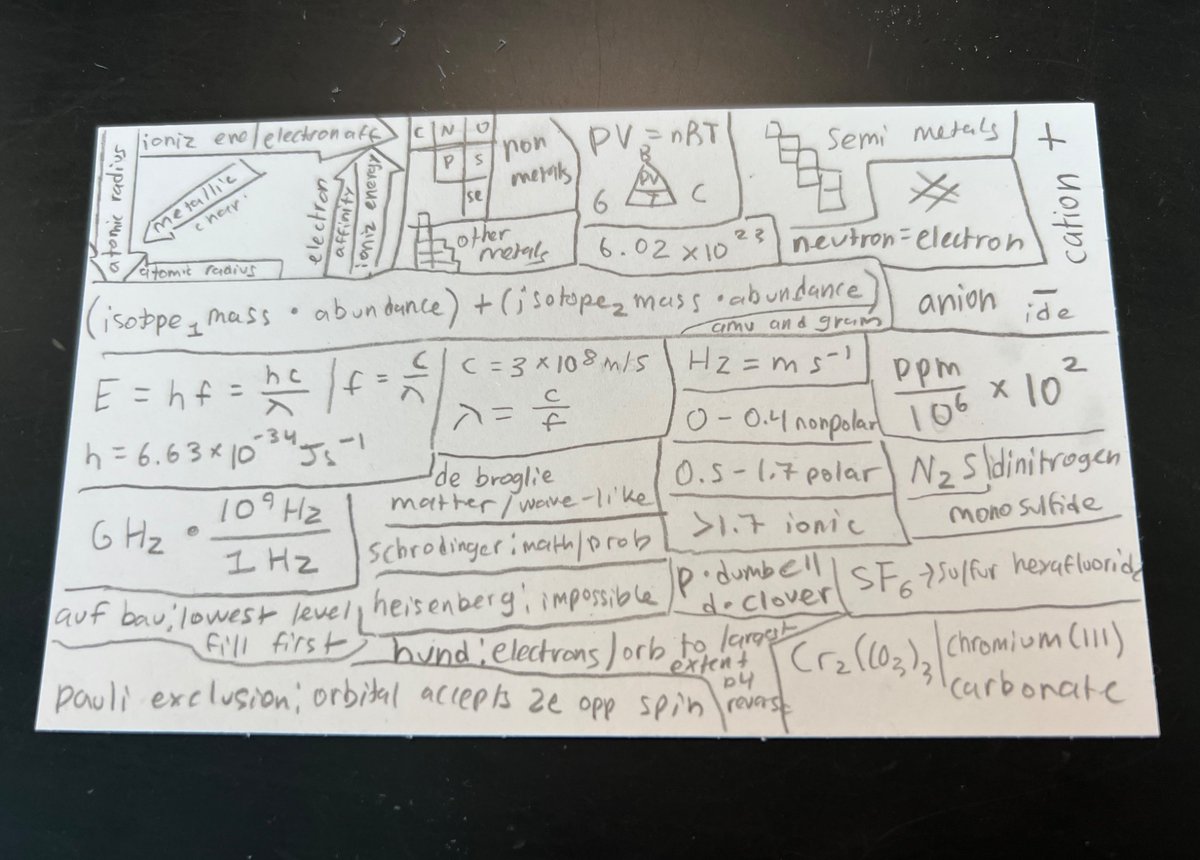 atomic radius
ioniz ene/electron aff
metallic
char.
electron
affinity
ioniz energy
atomic radius
C N O
P S
Se
non
metals
other
metals
PV = nRT
B
PV
T
G C
6.02 × 10²³
semi metals
neutron = electron
cation +
(isotope₁ mass • abundance) + (isotope₂ mass • abundance)
amu and gram
anion −
ide
E = hf = hc/λ | f = c/λ
h = 6.63 × 10⁻³⁴ Js⁻¹
C = 3 × 10⁸ m/s
λ = c/f
Hz = m s⁻¹
0 - 0.4 nonpolar
0.5 - 1.7 polar
>1.7 ionic
ppm/10⁶ × 10²
N₂S | dinitrogen
mono sulfide
GHz • 10⁹ Hz/1 Hz
de broglie
matter/wave-like
schrodinger: math/prob
heisenberg: impossible
p • dumbell
d • clover
SF₆ → sulfur hexafluoride
auf bau: lowest level
fill first
hund: electrons/orb to largest
extent
by
reverse
pauli exclusion: orbital accepts 2e opp spin
Cr₂(CO₃)₃ | chromium (III)
carbonate